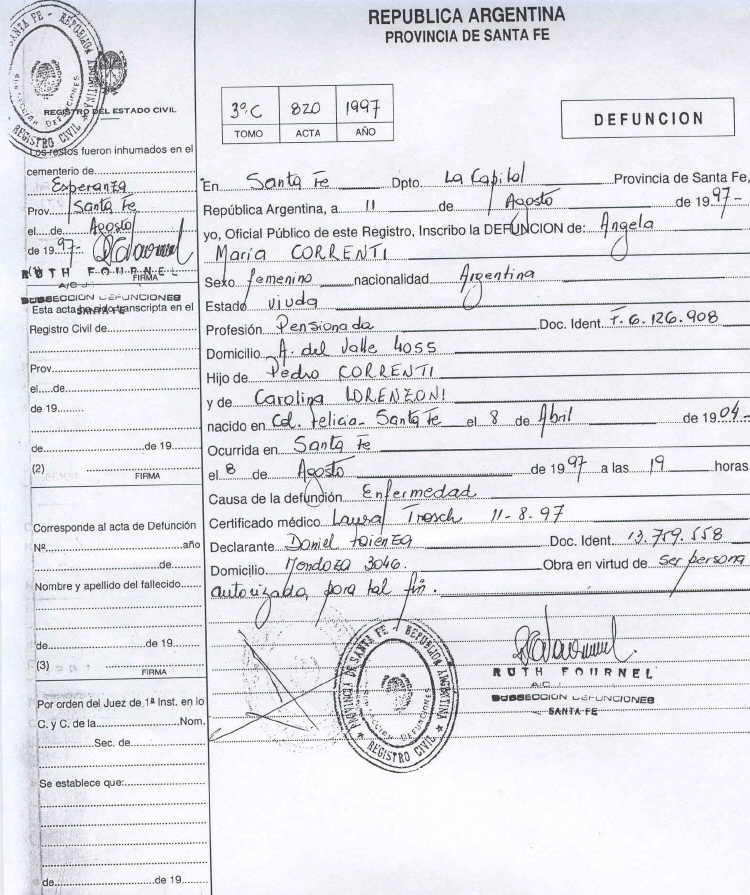 REPUBLICA ARGENTINA
PROVINCIA DE SANTA FE
REGISTRO DEL ESTADO CIVIL
3º C 820 1997
TOMO ACTA AÑO
DEFUNCION
Los restos fueron inhumados en el
cementerio de
Esperanza
Prov. Santa Fe
el de Agosto
de 19 97-
FIRMA
RUTH FOURNEL
A/C
SUBSECCION DEFUNCIONES
SANTA FE
Esta acta ha sido transcripta en el
Registro Civil de
Prov.
el de
de 19
de de 19
(2)
FIRMA
Corresponde al acta de Defunción
Nº año
de
Nombre y apellido del fallecido
de de 19
(3)
FIRMA
Por orden del Juez de 1ª Inst. en lo
C. y C. de la Nom.
Sec. de
Se establece que:
de de 19
En Santa Fe Dpto. La Capital Provincia de Santa Fe,
República Argentina, a 11 de Agosto de 19 97-
yo, Oficial Público de este Registro, Inscribo la DEFUNCION de: Angela
María CORRENTI
Sexo femenino nacionalidad Argentina
Estado viuda
Profesión Pensionada Doc. Ident. F. 6.126.908
Domicilio A. del Valle 4055
Hijo de Pedro CORRENTI
y de Carolina LORENZONI
nacido en Col. Felicia - Santa Fe el 8 de Abril de 19 04-
Ocurrida en Santa Fe
el 8 de Agosto de 19 97 a las 19 horas
Causa de la defunción Enfermedad
Certificado médico Laura Trosch 11-8-97
Declarante Daniel Doc. Ident. 13.759.558
Domicilio Mendoza 3046. Obra en virtud de ser persona
autorizada, para tal fin.
RUTH FOURNEL
A/C
SUBSECCION DEFUNCIONES
SANTA FE
PROVINCIA DE SANTA FE - REPUBLICA ARGENTINA
REGISTRO CIVIL